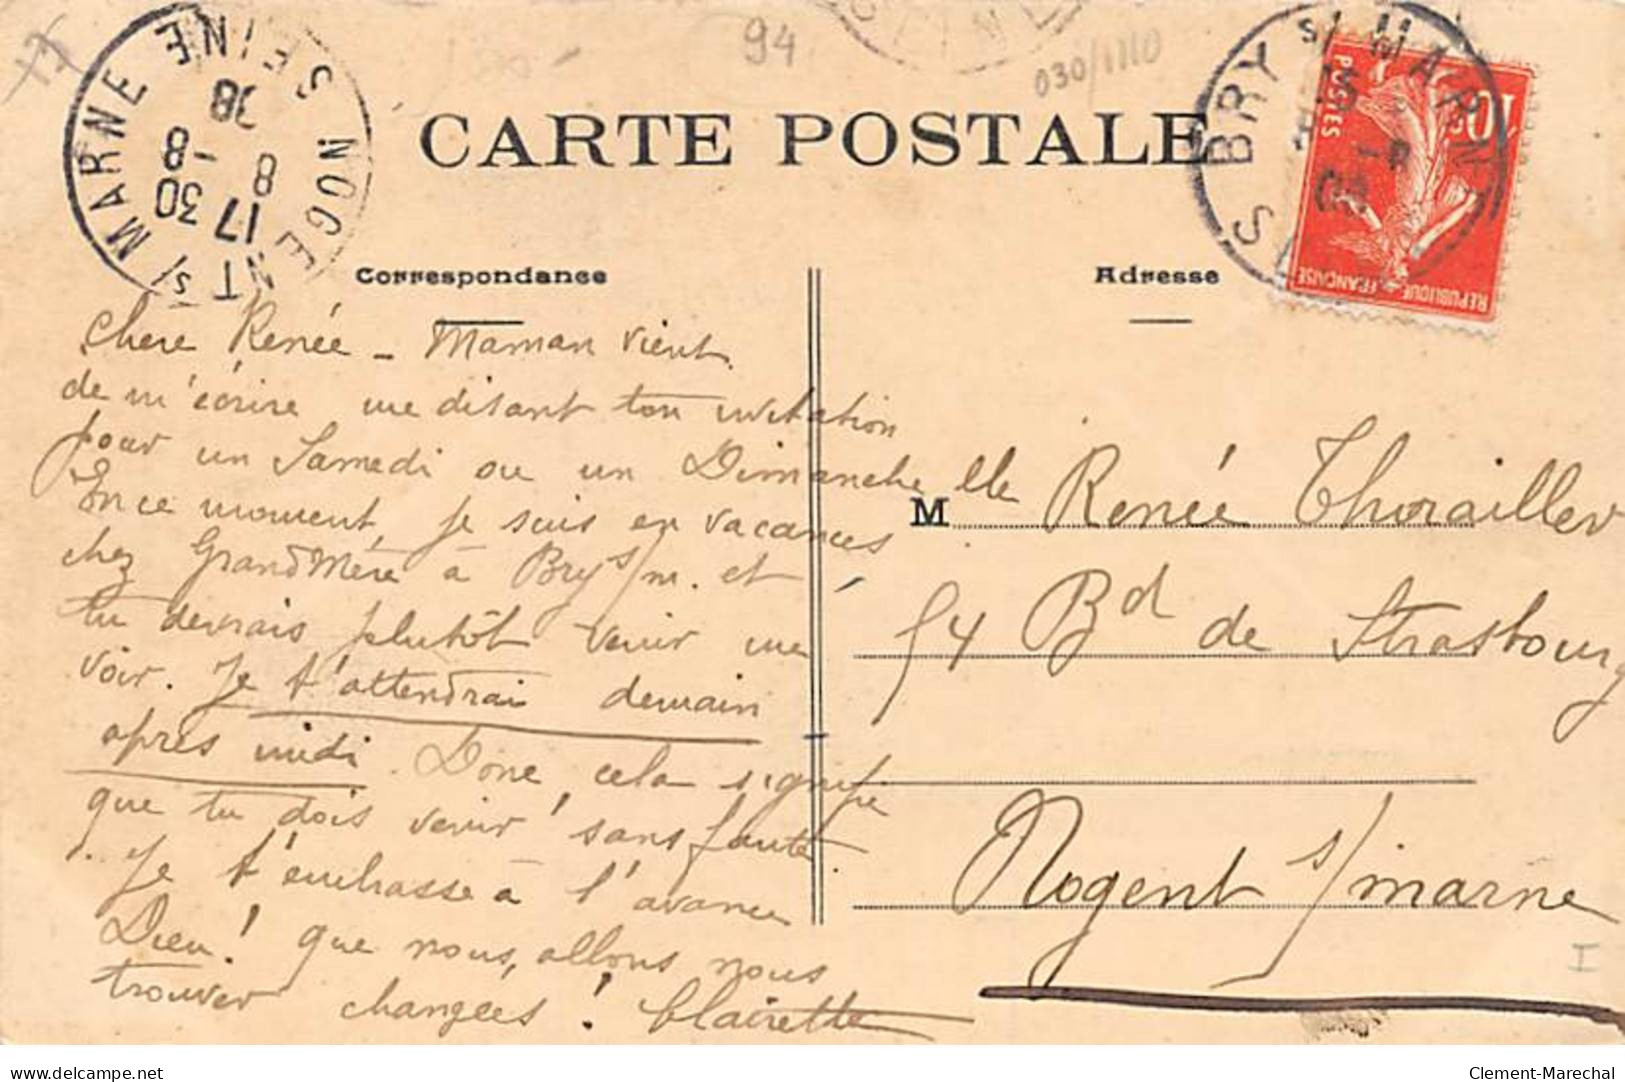 94
030/1110
CARTE POSTALE
NOGENT S/ MARNE SEINE
17 30
8 - 8
38
S BRY S/ MARNE
10c
POSTES
REPUBLIQUE FRANÇAISE
Correspondance
Adresse
Chere Renée - Maman vient
de m'écrire me disant ton invitation
pour un Samedi ou un Dimanche
En ce moment, je suis en vacances
chez Grand Mère à Bry s/m. et
tu devrais plutôt venir me
voir. Je t'attendrai demain
après midi. Donc, cela signifie
que tu dois venir sans faute.
Je t'embrasse à l'avance
Dieu! que nous, allons nous
trouver changées! Clairette
Mlle Renée Thorailler
54 Bd de Strasbourg
Nogent s/marne
I
delcampe.net
Clement-Marechal